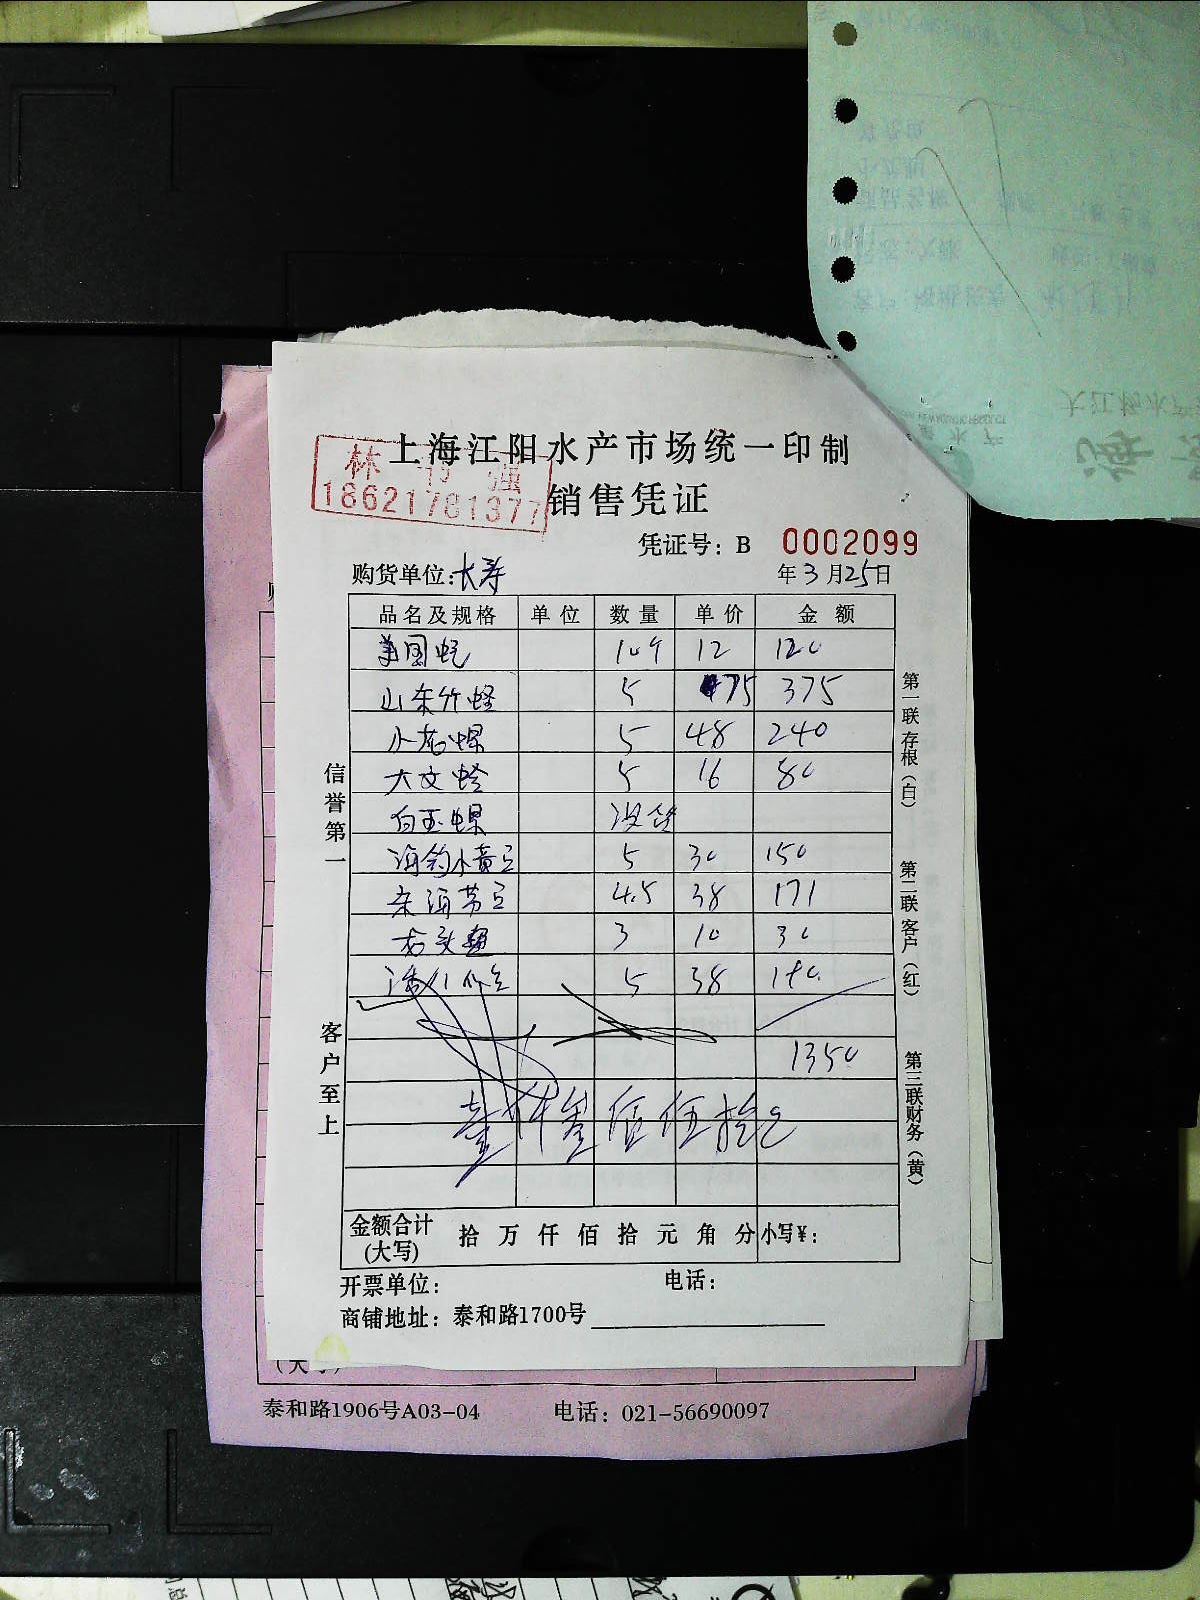 上海江阳水产市场统一印制
林
强
18621781377
销售凭证
凭证号：B 0002099
购货单位：长寿
年3月25日
品名及规格 单位 数量 单价 金额
美国蚝 10个 12 120
山东竹蛏 5 75 375
小花螺 5 48 240
大文蛤 5 16 80
白玉螺 没货
海钓小黄 5 30 150
4.5 38 171
3 10 30
5 38 190
1350
壹仟叁佰伍拾元
金额合计（大写） 拾 万 仟 佰 拾 元 角 分 小写¥：
开票单位： 电话：
商铺地址：泰和路1700号
信誉第一
客户至上
第一联存根（白）
第二联客户（红）
第三联财务（黄）
泰和路1906号A03-04 电话：021-56690097